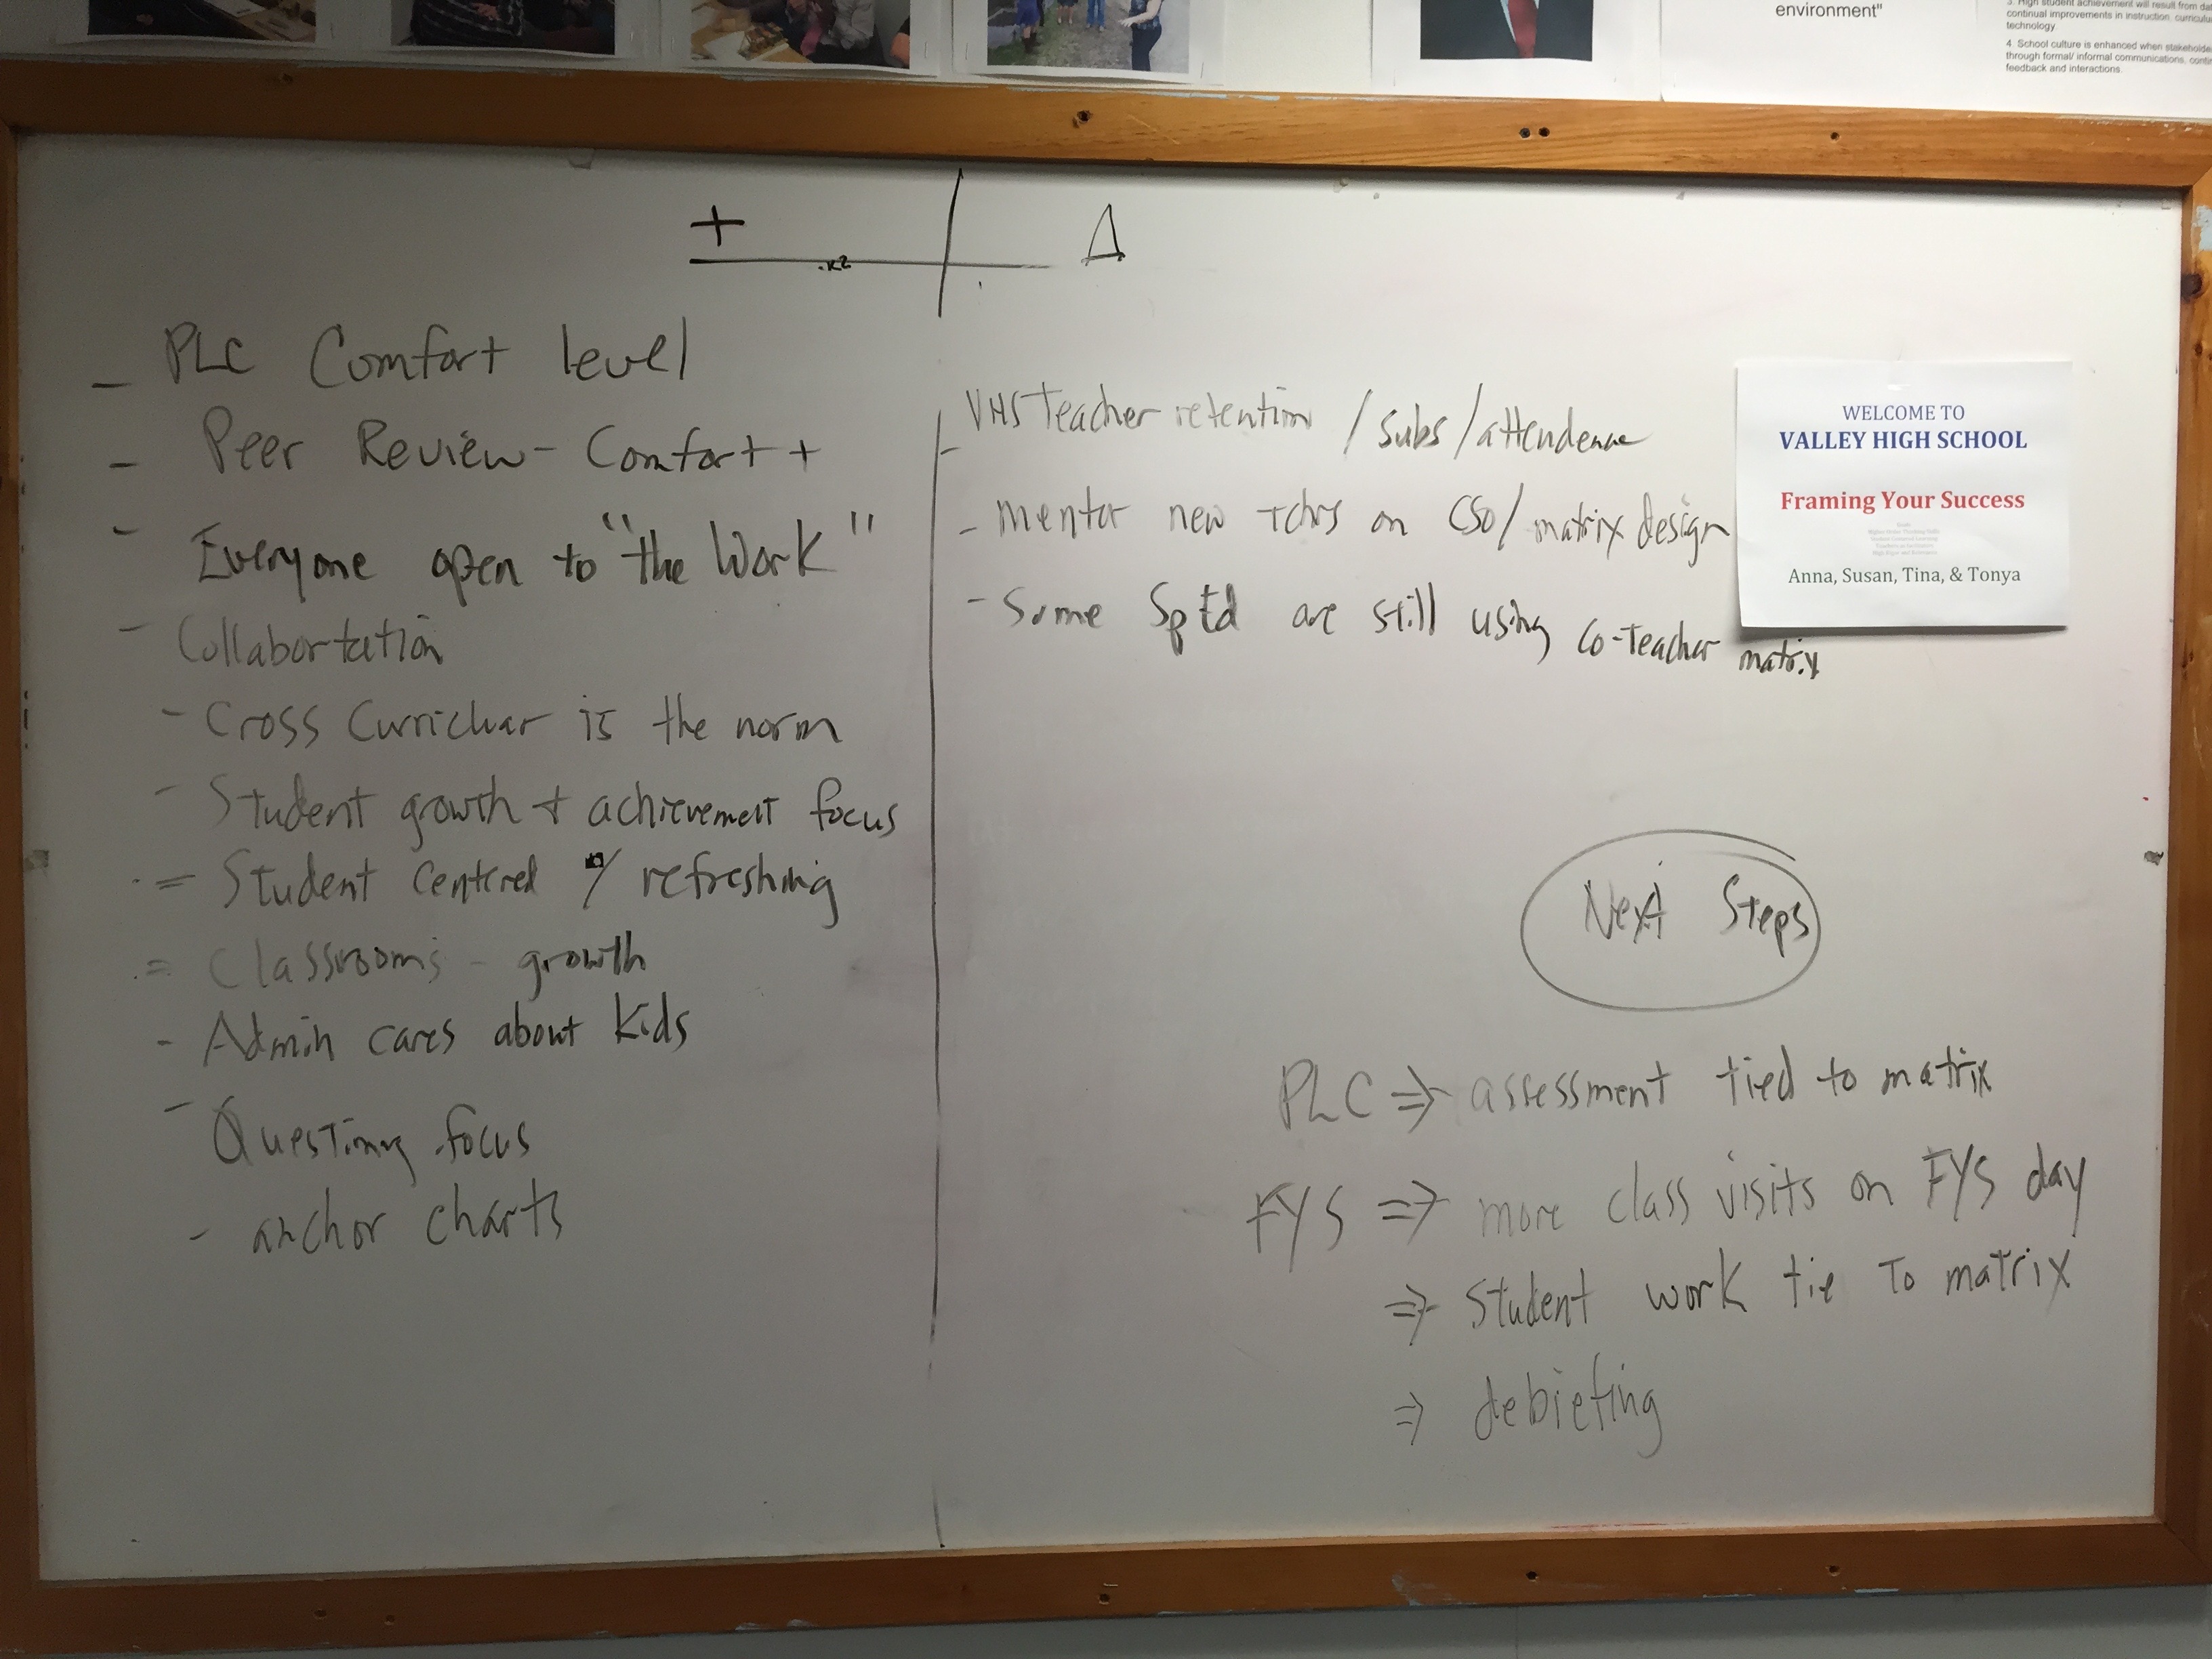 environment"
3. High student achievement will result from
continual improvements in instruction,
technology.
4. School culture is enhanced when
through formal/ informal communications,
feedback and interactions.
+ Δ
- PLC Comfort level
- Peer Review - Comfort +
- Everyone open to "the Work"
- Collabortation
- Cross Curricluar is the norm
- Student growth + achievement focus
= Student Centered / refreshing
= Classrooms - growth
- Admin cares about kids
- Questiong focus
- anchor charts
- VHS Teacher retention / subs / attendence
- mentor new Tchrs on CSO/ matrix design
- Some SpEd are still using Co-Teacher matrix
WELCOME TO
VALLEY HIGH SCHOOL
Framing Your Success
Anna, Susan, Tina, & Tonya
Next Steps
PLC ⇒ assessment tied to matrix
FYS ⇒ more class visits on FYS day
⇒ Student work tie To matrix
⇒ debiefing